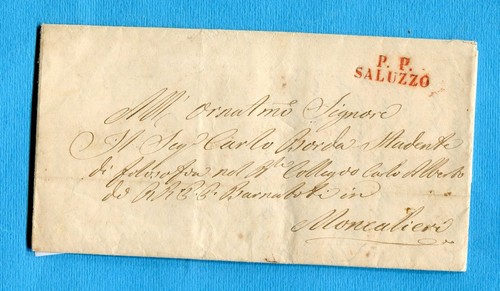 P. P.
SALUZZO
All' Ornatmo Signore
Il Sigr Carlo Borda Studente
di filosofia nel Rle Collegio Carlo Alberto
de RR. PP. Barnabiti in
Moncalieri